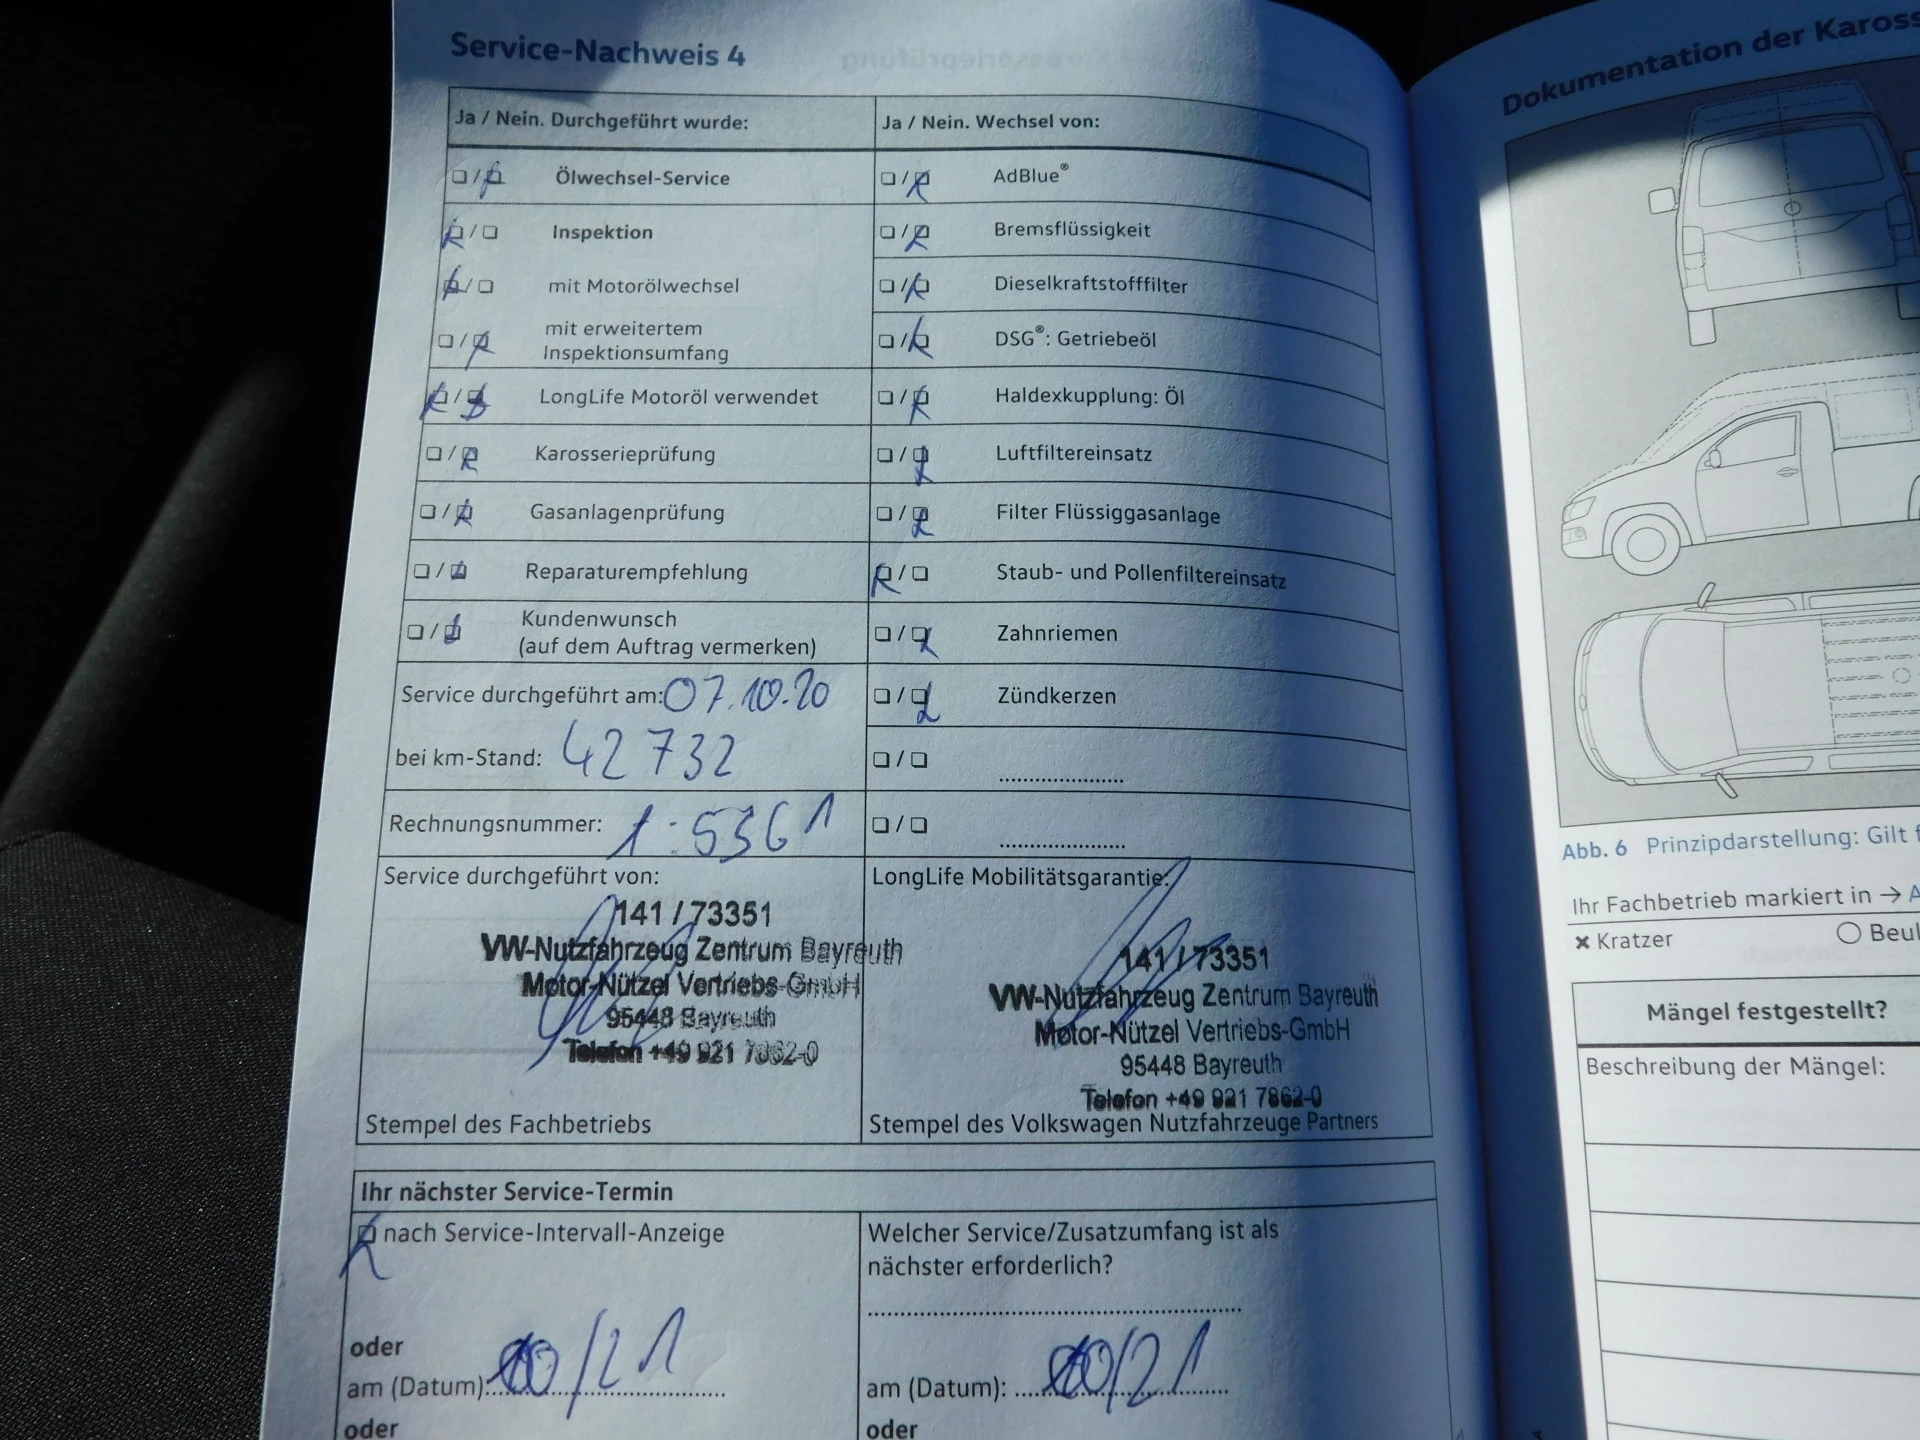 Service-Nachweis 4
Ja / Nein. Durchgeführt wurde:
Ölwechsel-Service
Inspektion
mit Motorölwechsel
mit erweitertem
Inspektionsumfang
LongLife Motoröl verwendet
Karosserieprüfung
Gasanlagenprüfung
Reparaturempfehlung
Kundenwunsch
(auf dem Auftrag vermerken)
Service durchgeführt am: 07.10.20
bei km-Stand: 42732
Rechnungsnummer: 1:5361
Service durchgeführt von:
141 / 73351
VW-Nutzfahrzeug Zentrum Bayreuth
Motor-Nützel Vertriebs-GmbH
95448 Bayreuth
Telefon +49 921 7862-0
Stempel des Fachbetriebs
Ja / Nein. Wechsel von:
AdBlue®
Bremsflüssigkeit
Dieselkraftstofffilter
DSG®: Getriebeöl
Haldexkupplung: Öl
Luftfiltereinsatz
Filter Flüssiggasanlage
Staub- und Pollenfiltereinsatz
Zahnriemen
Zündkerzen
LongLife Mobilitätsgarantie:
141 / 73351
VW-Nutzfahrzeug Zentrum Bayreuth
Motor-Nützel Vertriebs-GmbH
95448 Bayreuth
Telefon +49 921 7862-0
Stempel des Volkswagen Nutzfahrzeuge Partners
Ihr nächster Service-Termin
nach Service-Intervall-Anzeige
oder
am (Datum): 10/21
oder
Welcher Service/Zusatzumfang ist als
nächster erforderlich?
am (Datum): 10/21
oder
Dokumentation der Kaross
Abb. 6 Prinzipdarstellung: Gilt f
Ihr Fachbetrieb markiert in → A
× Kratzer
Beul
Mängel festgestellt?
Beschreibung der Mängel: